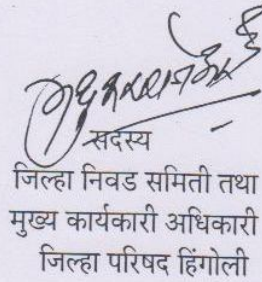 सदस्य
जिल्हा निवड समिती तथा
मुख्य कार्यकारी अधिकारी
जिल्हा परिषद हिंगोली